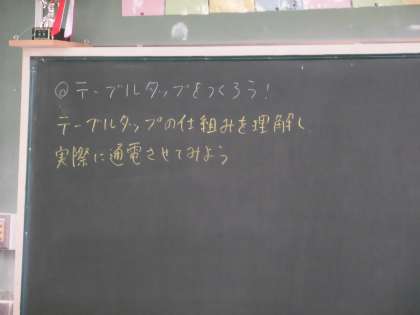 ◎テーブルタップをつくろう!
テーブルタップの仕組みを理解し
実際に通電させてみよう